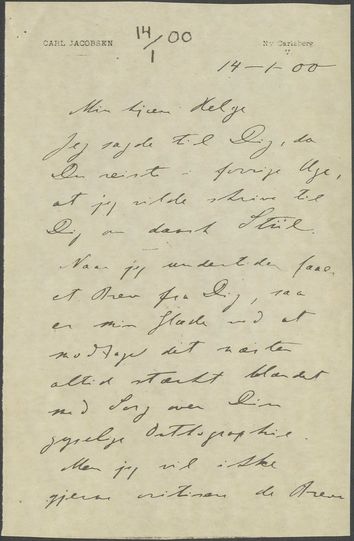 CARL JACOBSEN
14/1 00
Ny Carlsberg
14-1-00
Min kjære Helge
Jeg sagde til Dig, da
Du reiste i forrige Uge,
at jeg vilde skrive til
Dig om dansk Stiil.
Naar jeg undertiden faaer
et Brev fra Dig, saa
er min Glæde ved at
modtage det næsten
altid stærkt blandet
med Sorg over Din
gyselige Orthographie.
Men jeg vil ikke
gjerne critisere de Breve